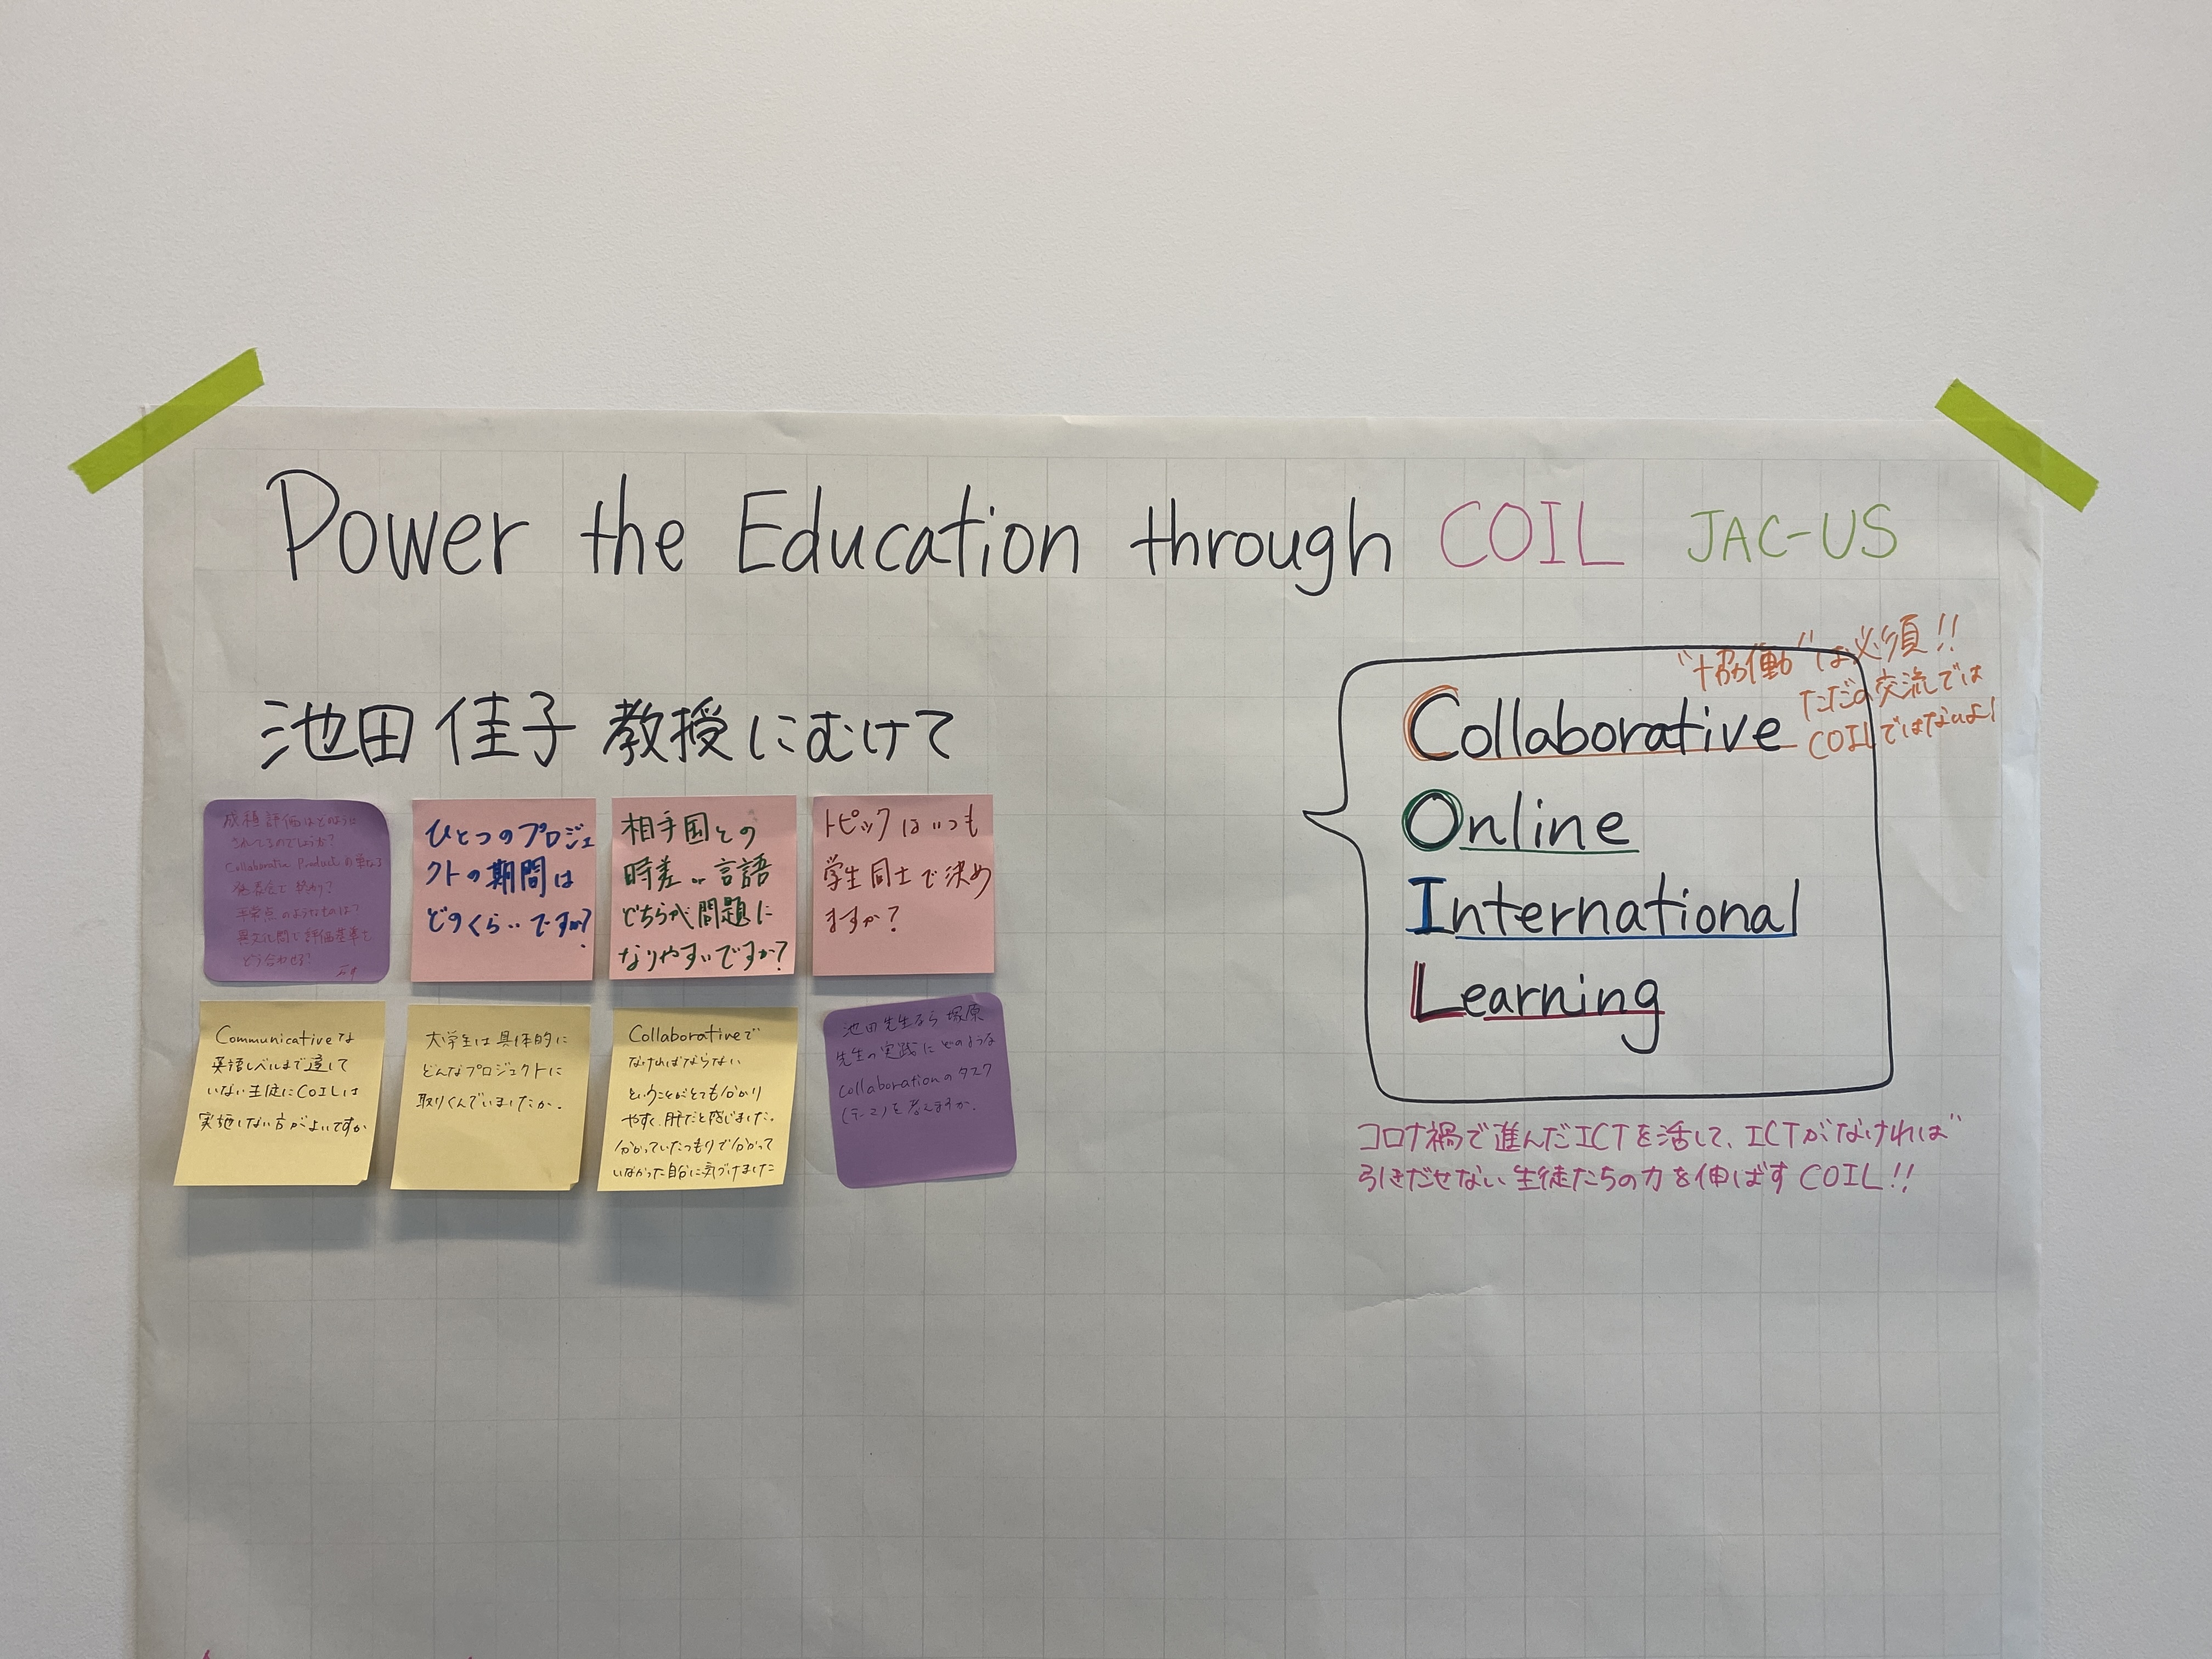 Power the Education through COIL JAC-US
池田 佳子 教授にむけて
成績評価はどのように
されてるのでしょうか?
Collaborative Product
発表会で終わり?
平常点のようなものは?
異文化間で評価基準を
どう合わせる?
ひとつのプロジェ
クトの期間は
どのくらいですか?
相手国との
時差 or 言語
どちらが問題に
なりやすいですか?
トピックはいつも
学生同士で決め
ますか?
Communicativeな
英語レベルまで達して
いない生徒にCOILは
実施しない方がよいですか
大学生は具体的に
どんなプロジェクトに
取りくんでいましたか.
Collaborativeで
なければならない
ということがとても分かり
やすく、肝だと感じました.
分かっていたつもりで分かって
いなかった自分に気づけました
池田先生なら塚原
先生の実践にどのような
collaborationのタスク
(テーマ)を考えますか.
"協働"は必須!!
ただの交流では
COILではないよ!
Collaborative
Online
International
Learning
コロナ禍で進んだICTを活して、ICTがなければ
引きだせない生徒たちの力を伸ばすCOIL!!